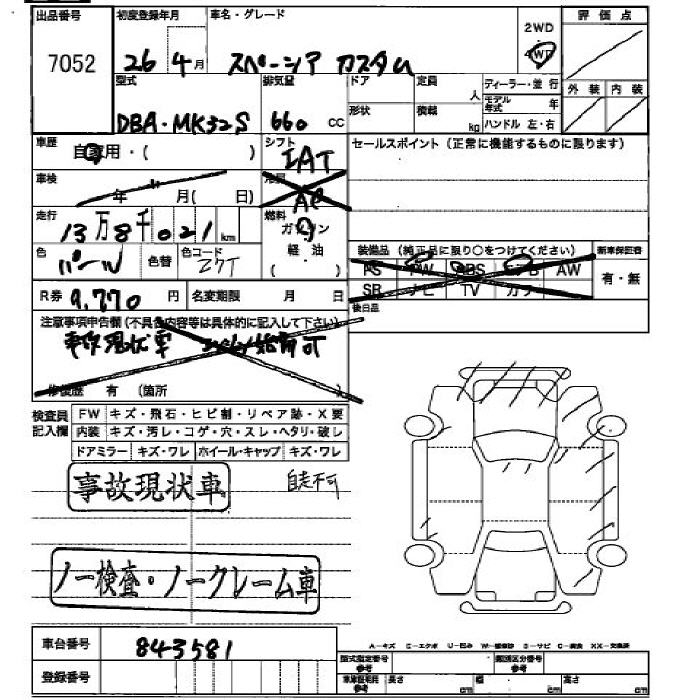 出品番号 初度登録年月 車名・グレード 2WD 評価点
7052 26年4月 スペーシア カスタム 4WD
型式 排気量 ドア 定員 人 ディーラー・並行 外装 内装
DBA-MK32S 660 CC 形状 積載 kg モデル年式 年
ハンドル 左・右
車歴 自家用・( ) シフト IAT セールスポイント(正常に機能するものに限ります)
車検 年 月( 日) 冷房 AC
走行 13万8千021km 燃料 ガソリン
色 パール 色替 色コード Z7T 軽油 ( ・ )
装備品(純正品に限り○をつけてください) 新車保証書
PS PW ABS エアB AW 有・無
SR ナビ TV カラ
R券 9,770円 名変期限 月 日 後日品
注意事項申告欄(不具合内容等は具体的に記入して下さい)
事故現状車 始動可
修復歴 有 (箇所 )
検査員記入欄 FW キズ・飛石・ヒビ割・リペア跡・X要
内装 キズ・汚レ・コゲ・穴・スレ・ヘタリ・破レ
ドアミラー キズ・ワレ ホイール・キャップ キズ・ワレ
事故現状車 自走不可
ノー検査・ノークレーム車
A-キズ E-エクボ U-凹み W-補修跡 S-サビ C-腐食 XX-交換済
車台番号 843581 型式指定番号 参考 類別区分番号 参考
登録番号 車庫証明用 参考 長さ cm 幅 cm 高さ cm